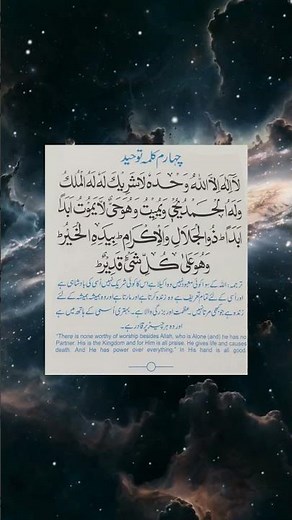 چہارم کلمہ توحید
لَآ اِلٰهَ اِلَّا اللّٰهُ وَحْدَهٗ لَا شَرِيْكَ لَهٗ لَهُ الْمُلْكُ
وَلَهُ الْحَمْدُ يُحْيٖ وَيُمِيْتُ وَهُوَ حَيٌّ لَّا يَمُوْتُ اَبَدًا
اَبَدًاؕ ذُو الْجَلَالِ وَالْاِكْرَامِؕ بِيَدِهِ الْخَيْرُؕ
وَهُوَ عَلٰى كُلِّ شَیْءٍ قَدِيْرٌؕ
ترجمہ: اللہ کے سوا کوئی معبود نہیں وہ اکیلا ہے اس کا کوئی شریک نہیں اُسی کی بادشاہی ہے
اور اُسی کے لئے تمام تعریف ہے وہ زندہ کرتا ہے اور مارتا ہے اور وہ ہمیشہ ہمیشہ کے لئے
زندہ ہے جو کبھی مرتا نہیں۔ عظمت اور بزرگی والا ہے۔ بہتری اُسی کے ہاتھ میں ہے
اور وہ ہر چیز پر قادر ہے۔
"There is none worthy of worship besides Allah, who is Alone (and) he has no
Partner. His is the Kingdom and for Him is all praise. He gives life and causes
death. And He has power over everything." In His hand is all good.